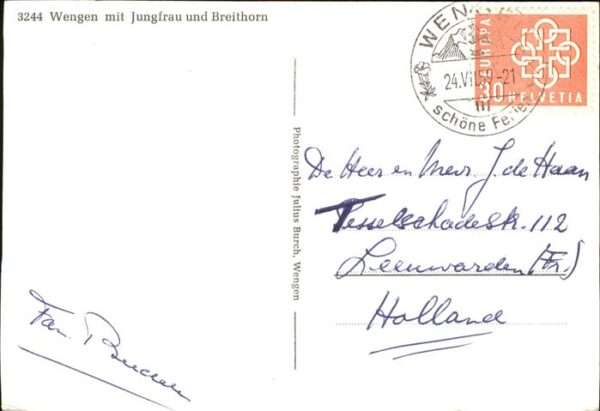 3244 Wengen mit Jungfrau und Breithorn
WENGEN
24.VII.59-21
schöne Ferien
EUROPA
30
HELVETIA
Photographie Julius Burch, Wengen
De Heer en Mevr. J. de Haan
Tesselschadestr. 112
Leeuwarden (Fr.)
Holland
Fam.